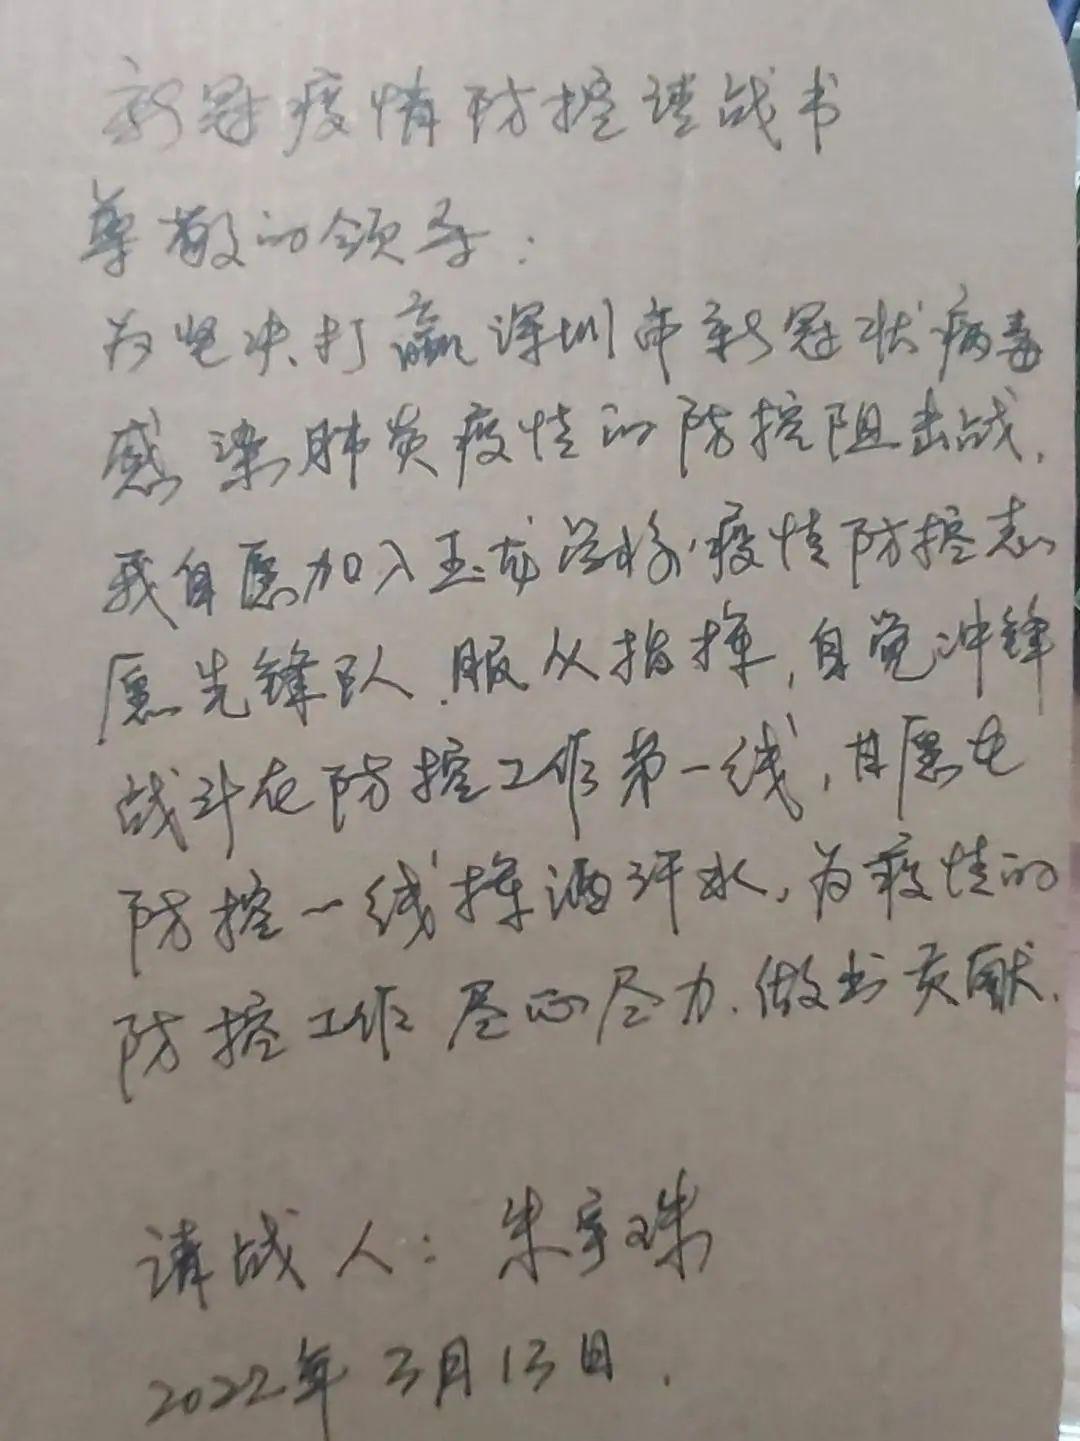 新冠疫情防控请战书
尊敬的领导:
为坚决打赢深圳市新冠状病毒
感染肺炎疫情的防控阻击战,
我自愿加入玉龙总校疫情防控志
愿先锋队.服从指挥,自觉冲锋
战斗在防控工作第一线,甘愿在
防控一线挥洒汗水,为疫情的
防控工作尽心尽力.做出贡献.
请战人:朱宇珠
2022年3月13日.